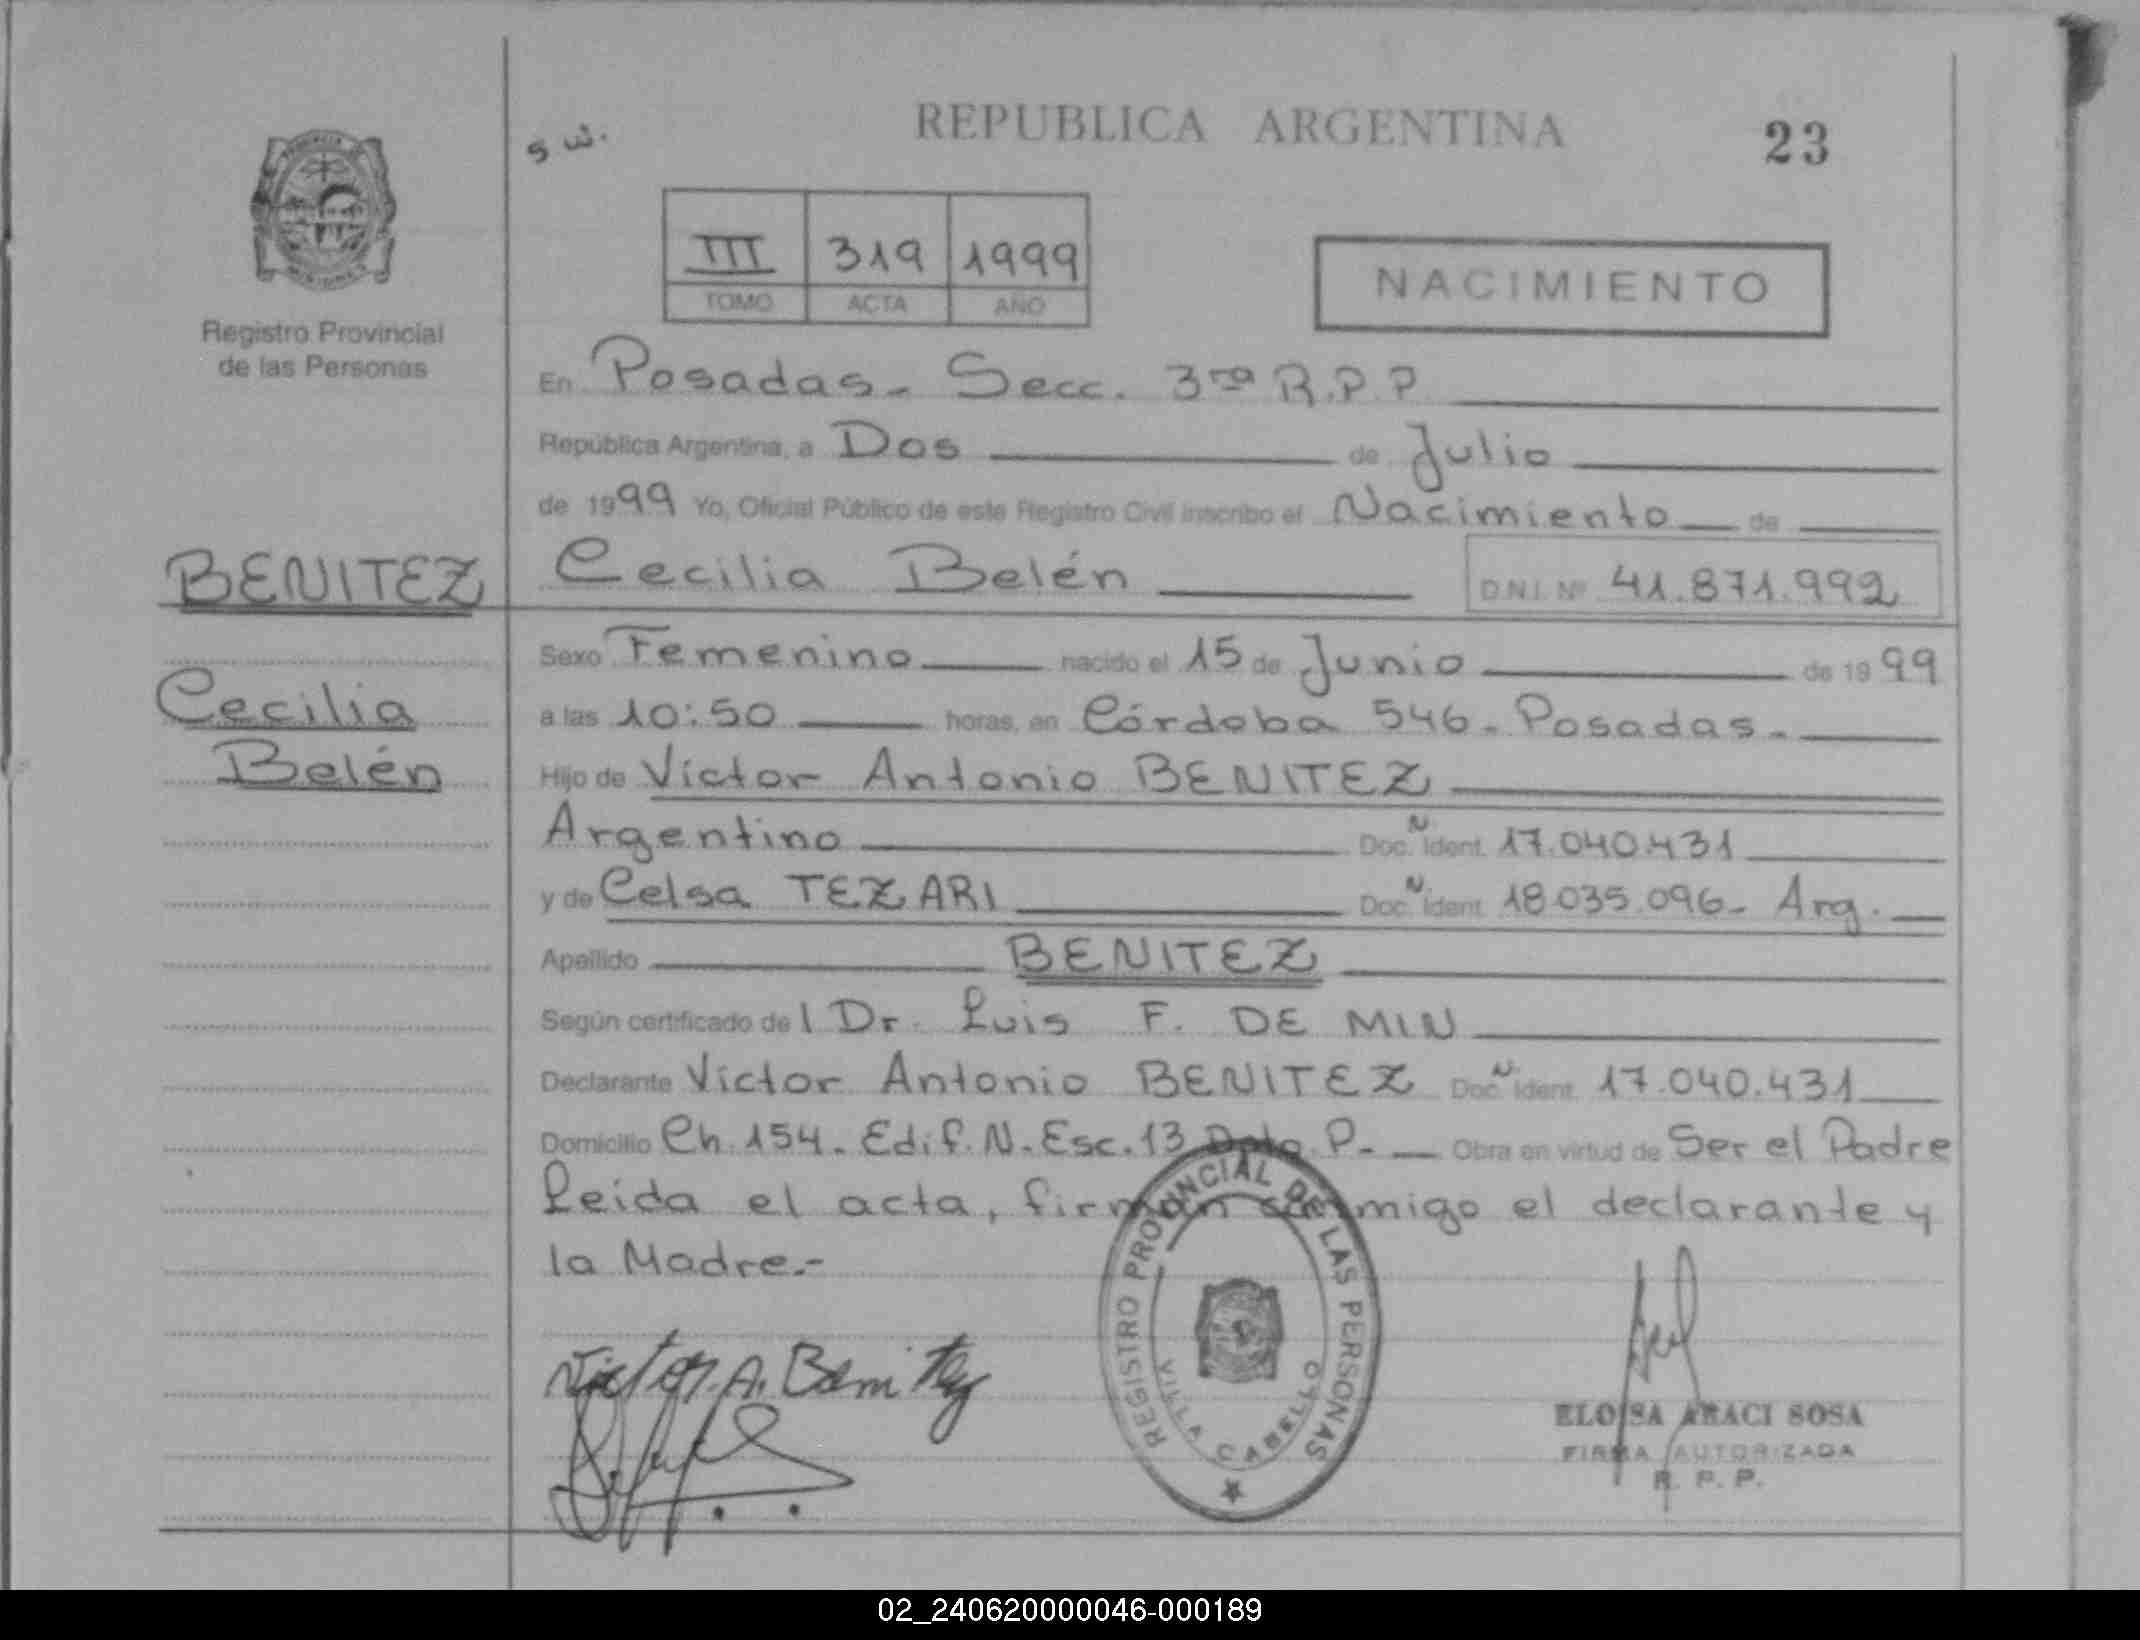 REPUBLICA ARGENTINA
23
s w.
III 319 1999
TOMO ACTA AÑO
NACIMIENTO
Registro Provincial
de las Personas
En Posadas - Secc. 3ra R.P.P.
República Argentina, a Dos de Julio
de 1999 Yo, Oficial Público de este Registro Civil inscribo el Nacimiento de
BENITEZ
Cecilia Belén D.N.I. Nº 41.871.992
Sexo Femenino nacido el 15 de Junio de 1999
Cecilia
Belén
a las 10:50 horas, en Córdoba 546 - Posadas -
Hijo de Víctor Antonio BENITEZ
Argentino Doc. N. Ident. 17.040.431
y de Celsa TEZARI Doc. N. Ident. 18.035.096 - Arg.
Apellido BENITEZ
Según certificado del Dr. Luis F. DE MIN
Declarante Víctor Antonio BENITEZ Doc. N Ident. 17.040.431
Domicilio Ch. 154 - Edif. N - Esc. 13 Dpto P. - Obra en virtud de Ser el Padre
Leida el acta, firman conmigo el declarante y
la Madre.-
Victor A. Benitez
REGISTRO PROVINCIAL DE LAS PERSONAS
VILLA CABELLO
ELOISA ARACI SOSA
FIRMA AUTORIZADA
R. P. P.
02_240620000046-000189